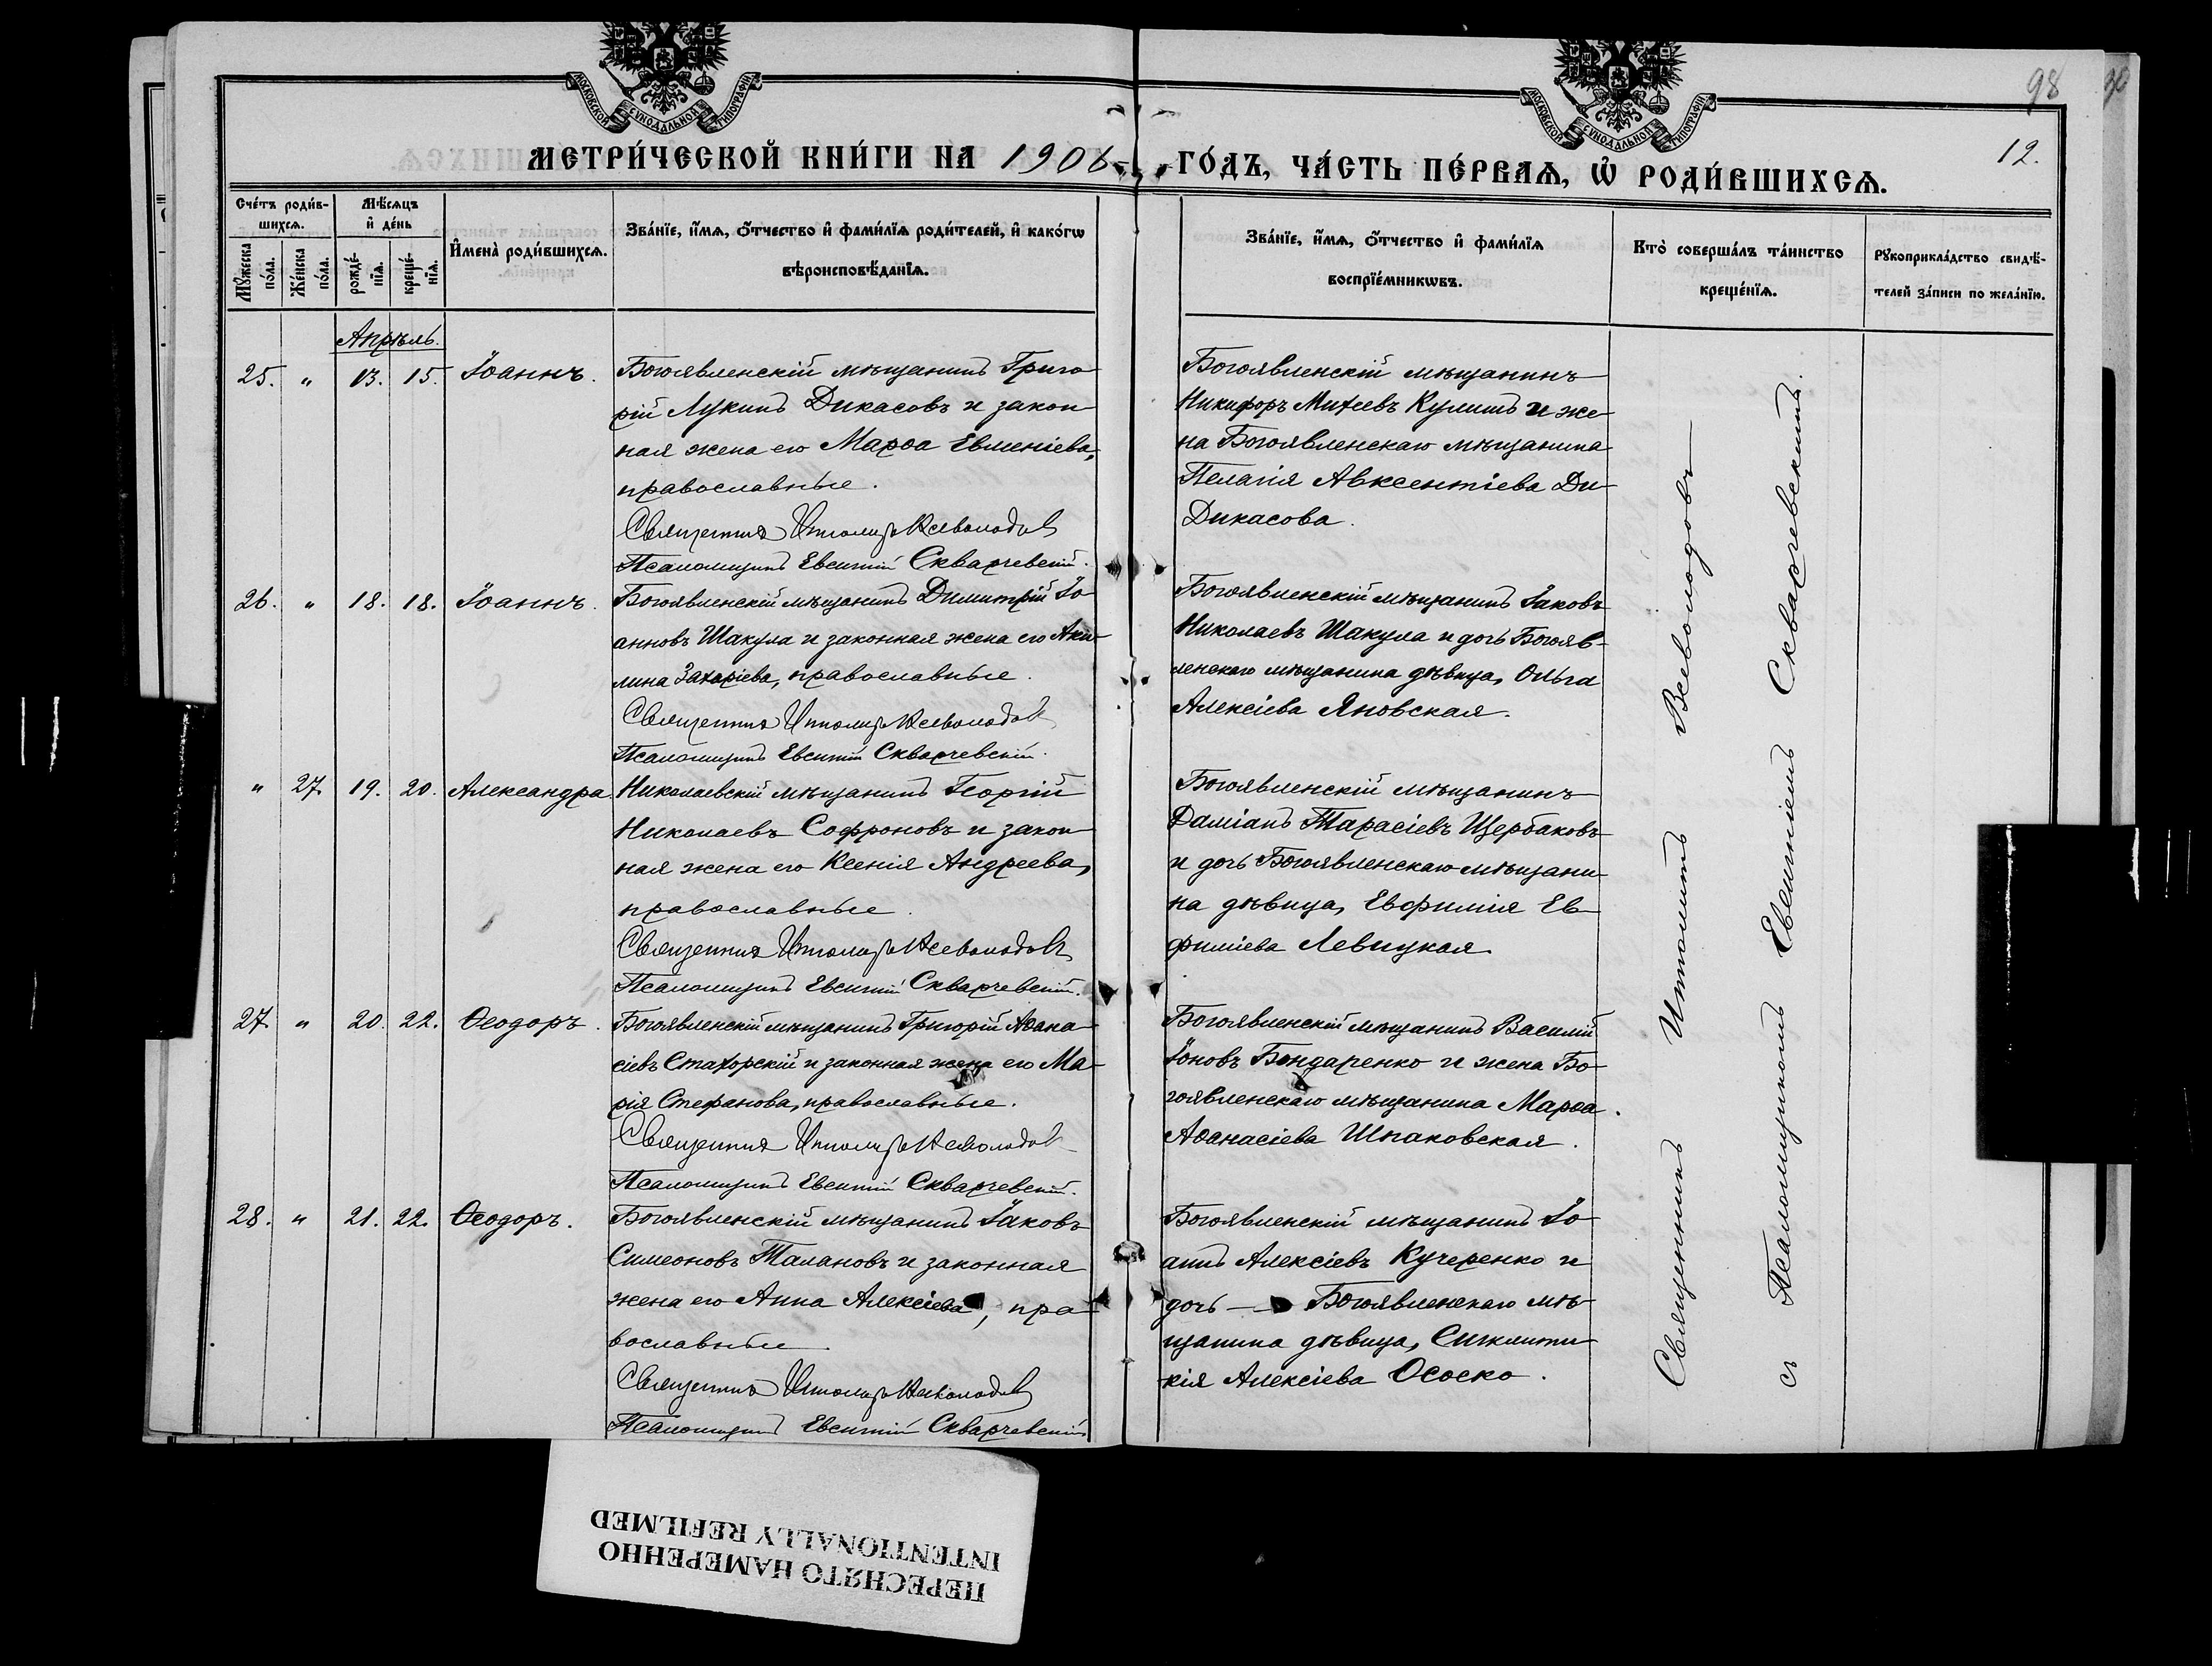 МОСКОВСКОЙ СѴНОДАЛЬНОЙ ТИПОГРАФІИ
МОСКОВСКОЙ СѴНОДАЛЬНОЙ ТИПОГРАФІИ
98
12.
МЕТРИ́ЧЕСКОЙ КНИ́ГИ НА 1906
ГО́ДЪ, ЧА́СТЬ ПЕ́РВАѦ, Ѽ РОДИ́ВШИХСѦ.
Сче́тъ роди́в-
шихсѧ.
Мꙋ́жеска по́ла.
Же́нска по́ла.
Мѣ́сѧцъ
и҆ де́нь
рожде́-нїѧ.
креще́-нїѧ.
И҆мена̀ роди́вшихсѧ.
Зва́нїе, и҆́мѧ, ѻ҆́тчество и҆ фами́лїѧ роди́телей, и҆ како́гѡ
вѣроисповѣ́данїѧ.
Зва́нїе, и҆́мѧ, ѻ҆́тчество и҆ фами́лїѧ
воспрїе́мникѡвъ.
Кто̀ соверша́лъ та́инство
креще́нїѧ.
Рꙋкоприкла́дство свидѣ́-
телей за́писи по жела́нїю.
Апрѣль.
25. " 13. 15. Іоаннъ.
Богоявленскій мѣщанинъ Григо
рій Лукинъ Дикасовъ и закон
ная жена его Марѳа Евменіева,
православные.
Священникъ Ипполитъ Всеволодовъ
Псаломщикъ Евсигній Скварчевскій.
Богоявленскій мѣщанинъ
Никифоръ Михеевъ Кулишъ и же-
на Богоявленскаго мѣщанина
Пелагія Авксентіева Ди-
Дикасова.
26. " 18. 18. Іоаннъ.
Богоявленскій мѣщанинъ Димитрій Іо-
анновъ Шакула и законная жена его Аки-
лина Захаріева, православные.
Священникъ Ипполитъ Всеволодовъ
Псаломщикъ Евсигній Скварчевскій.
Богоявленскій мѣщанинъ Іаковъ
Николаевъ Шакула и дочь Богояв-
ленскаго мѣщанина дѣвица, Ольга
Алексіева Яновская.
" 27. 19. 20. Александра.
Николаевскій мѣщанинъ Георгій
Николаевъ Софроновъ и закон
ная жена его Ксенія Андреева,
православные.
Священникъ Ипполитъ Всеволодовъ
Псаломщикъ Евсигній Скварчевскій.
Богоявленскій мѣщанинъ
Даміанъ Тарасіевъ Щербаковъ
и дочь Богоявленскаго мѣщани-
на дѣвица, Евфимія Ев-
фиміева Левицкая
27. " 20. 22. Ѳеодоръ.
Богоявленскій мѣщанинъ Григорій Аѳана
сіевъ Стахорскій и законная жена его Ма-
рія Стефанова, православные.
Священникъ Ипполитъ Всеволодовъ
Псаломщикъ Евсигній Скварчевскій.
Богоявленскій мѣщанинъ Василій
Іоновъ Бондаренко и жена Бо-
гоявленскаго мѣщанина Марѳа
Аѳанасіева Шпаковская.
28. " 21. 22. Ѳеодоръ.
Богоявленскій мѣщанинъ Іаковъ
Симеоновъ Талановъ и законная
жена его Анна Алексіева, пра-
вославные
Священникъ Ипполитъ Всеволодовъ
Псаломщикъ Евсигній Скварчевскій
Богоявленскій мѣщанинъ Іо-
аннъ Алексіевъ Кучеренко и
дочь — Богоявленскаго мѣ-
щанина дѣвица, Синклити-
кія Алексіева Ососко.
Священникъ Ипполитъ Всеволодовъ
съ Псаломщикомъ Евсигніемъ Скварчевскимъ.
ПЕРЕСНЯТО НАМЕРЕННО
INTENTIONALLY REFILMED